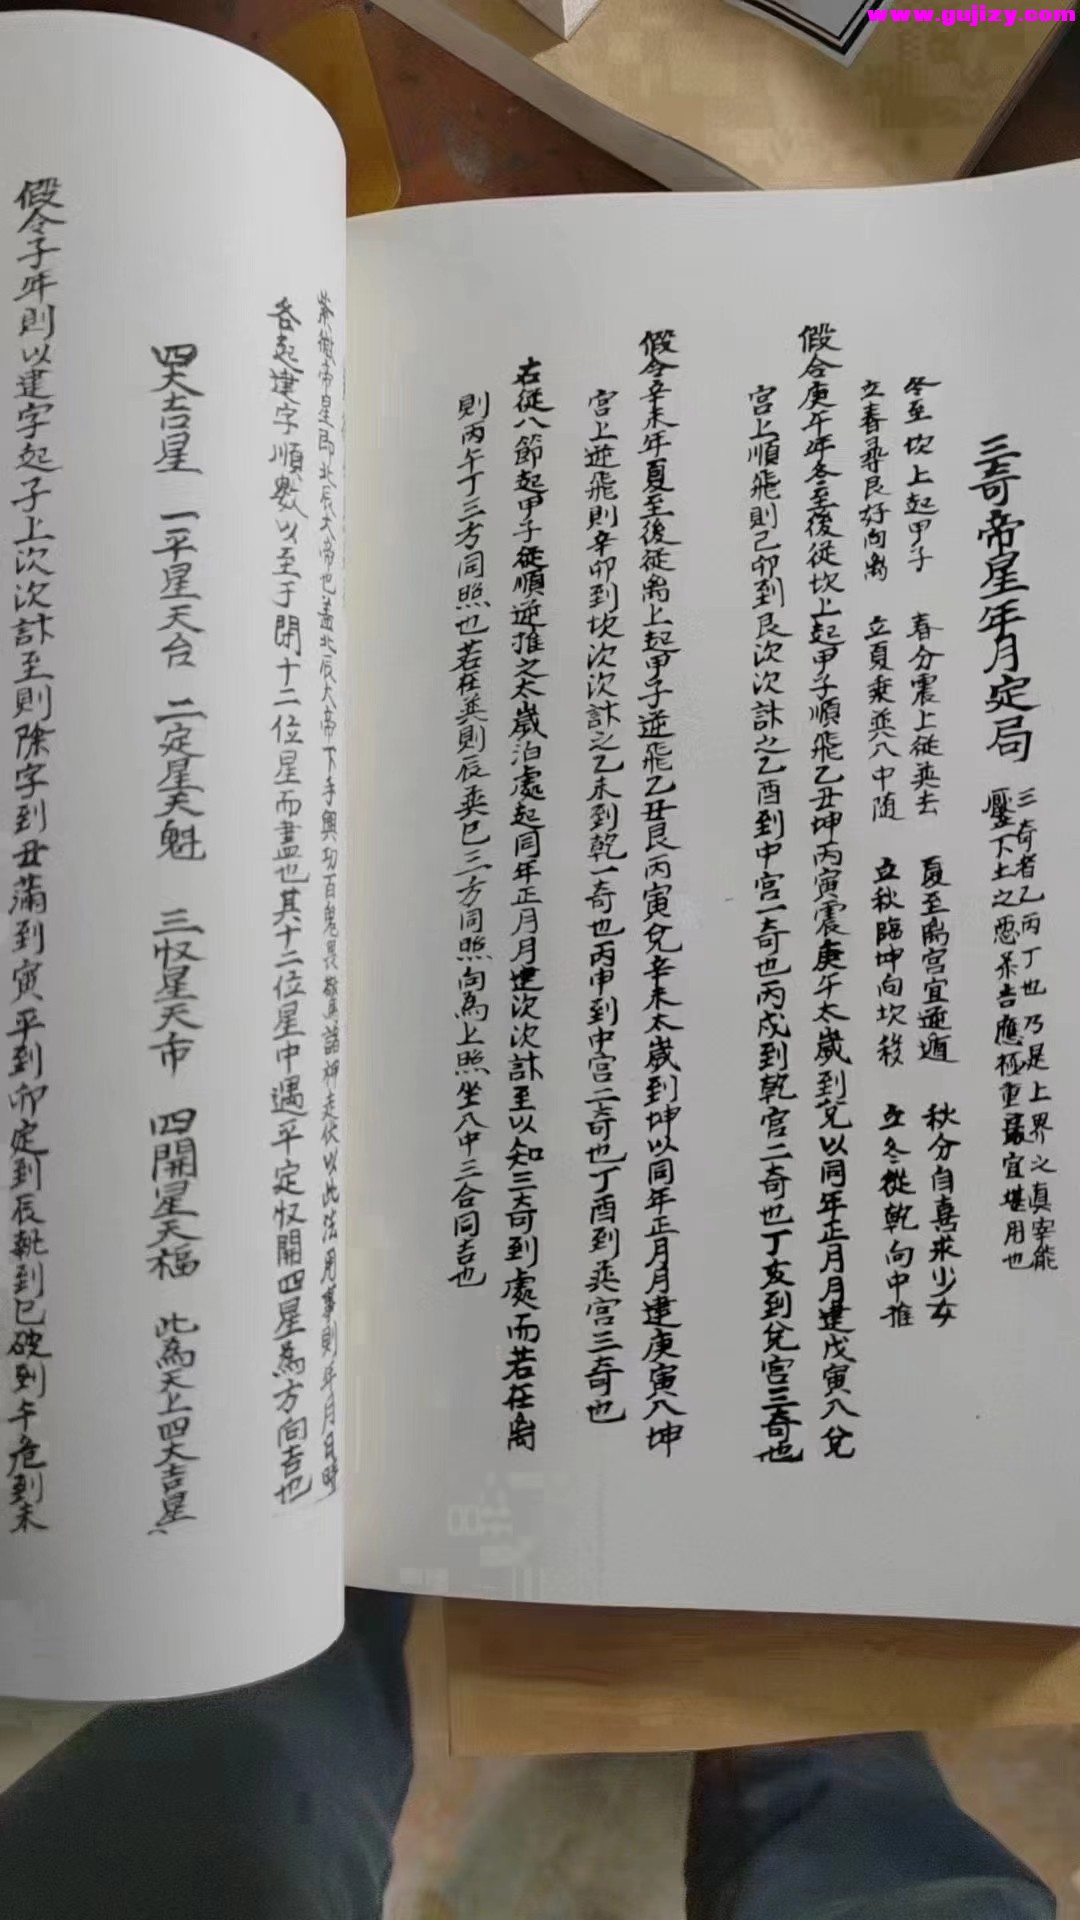 www.gujizy.com
三奇帝星年月定局
三奇者乙丙丁也乃是上界之真宰能
壓下土之惡杀吉應極重最宜堪用也
冬至坎上起甲子 春分震上從巽去 夏至离宫宜逆遁 秋分自喜求少女
立春尋艮好向离 立夏乗巽八中随 立秋臨坤向坎移 立冬從乾向中推
假令庚午年冬至後從坎上起甲子順飛乙丑坤丙寅震庚午太歲到兑以同年正月月建戊寅入兑
宫上順飛則己卯到艮次次計之乙酉到中宫一奇也丙戌到乾宫二奇也丁亥到兑宫三奇也
假令辛未年夏至後從离上起甲子逆飛乙丑艮丙寅兑辛未太歲到坤以同年正月月建庚寅入坤
宫上逆飛則辛卯到坎次次計之乙未到乾一奇也丙申到中宫二奇也丁酉到巽宫三奇也
右從八節起甲子從順逆推之太歲泊處起同年正月月建次次計至以知三奇到處而若在离
則丙午丁三方同照也若在巽則辰巽巳三方同照向為上照坐八中三合同吉也
紫微帝星即北辰大帝也盖北辰大帝下手興功百鬼畏敬具諸神走伏以此法用事則年月日時
各起建字順數以至于閉十二位星而盡也其十二位星中遇平定收開四星為方向吉也
四大吉星 一平星天台 二定星天魁 三收星天市 四開星天福 此為天上四大吉星
假令子年則以建字起子上次次計至則除字到丑滿到寅平到卯定到辰執到巳破到午危到未